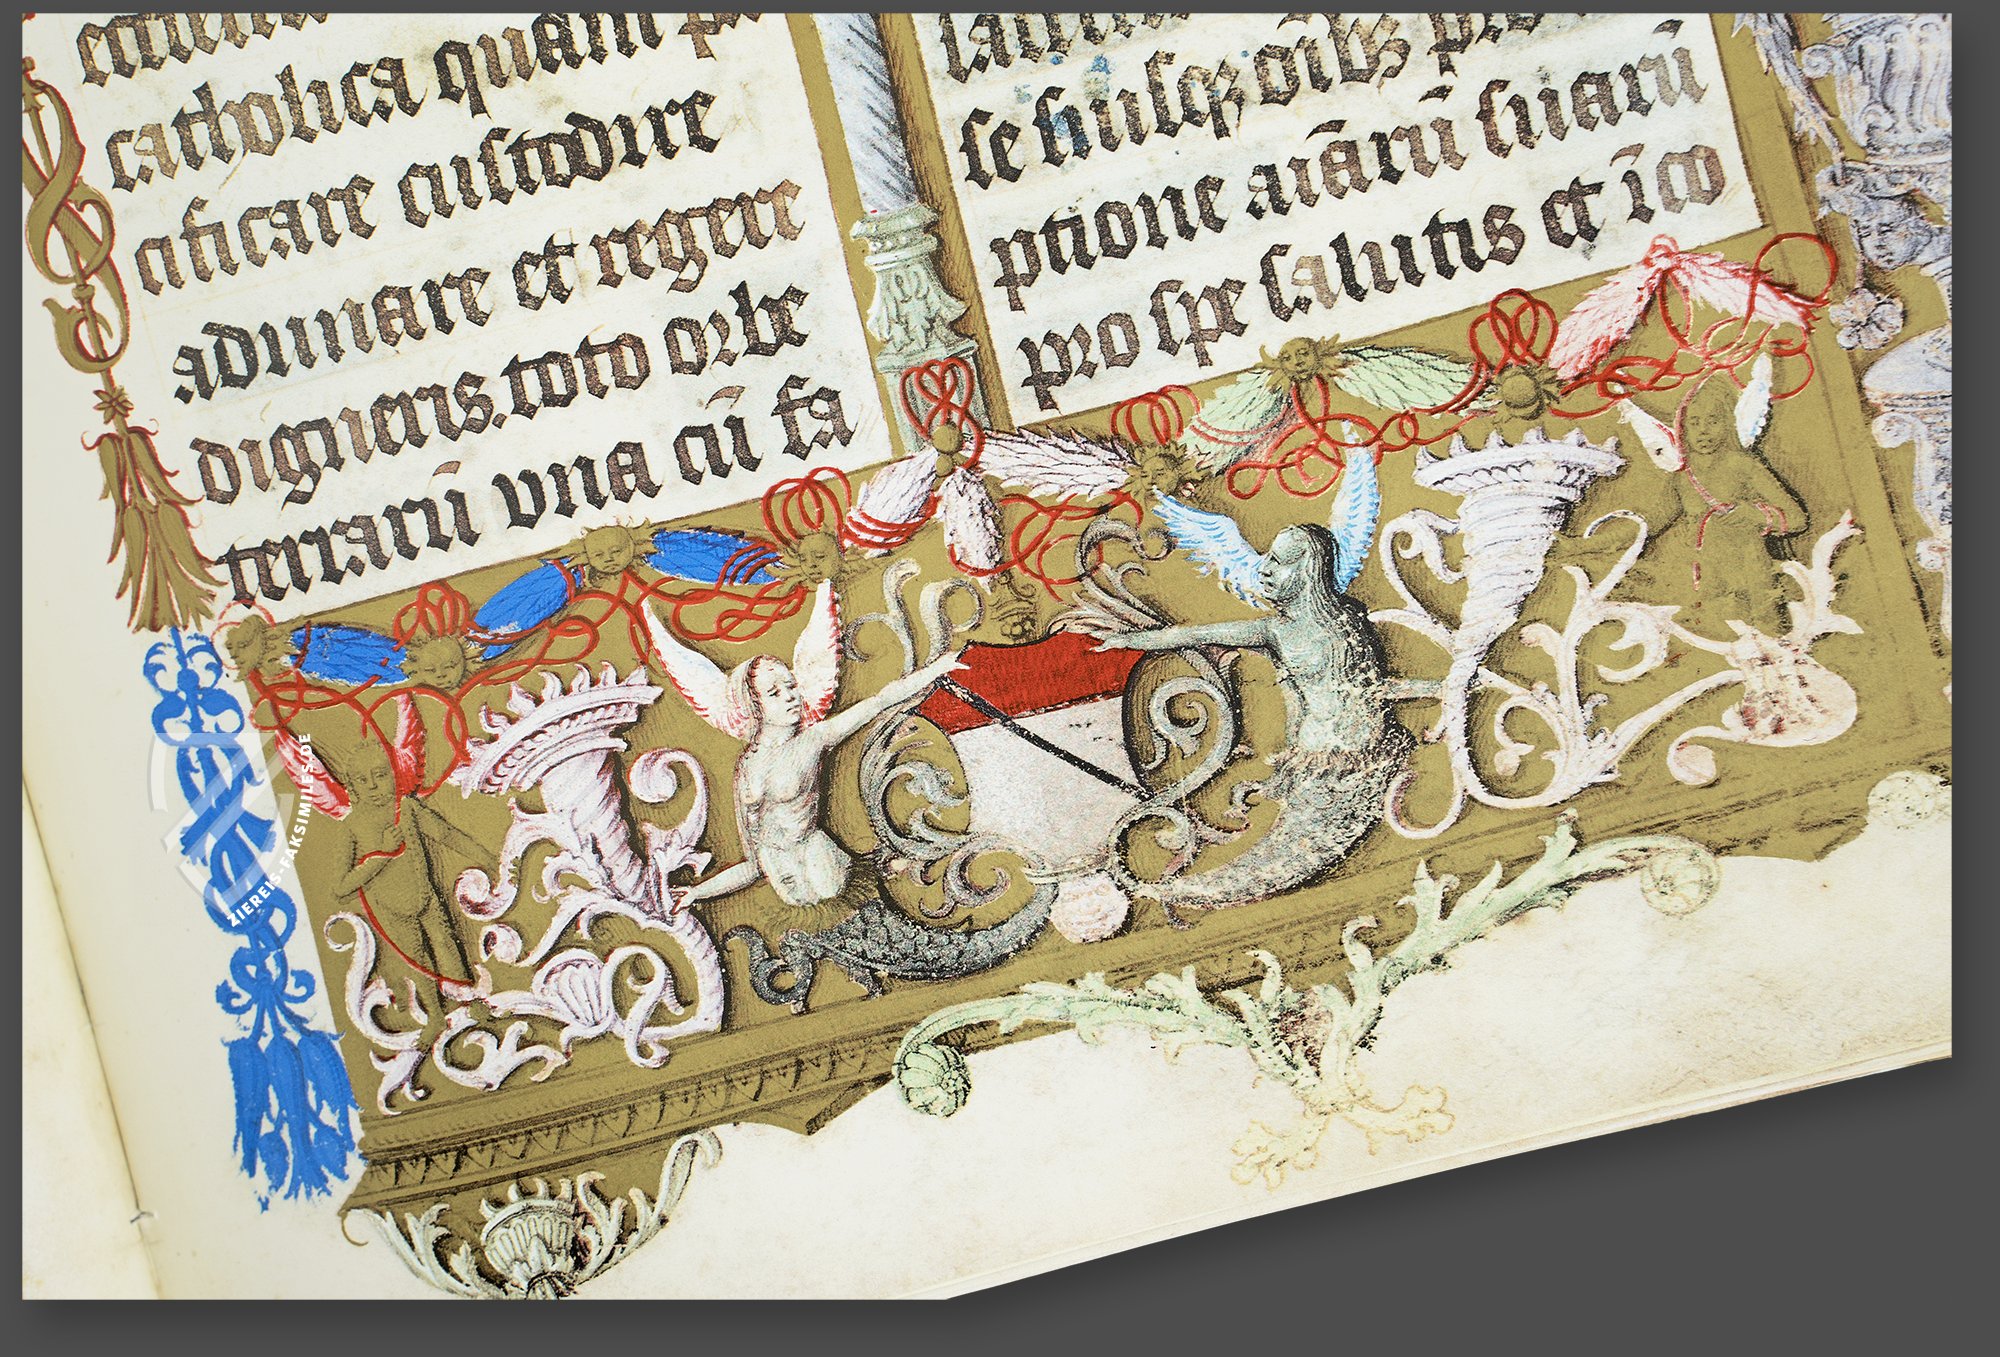 catholica quam pa
cificare custodire
adunare et regere
digneris.toto orbe
terrarū vna cū fa
se suisqꝫ oībꝫ pro
ptione aīarū suarū
pro spe salutis et īco
ZIEREIS-FAKSIMILES.DE